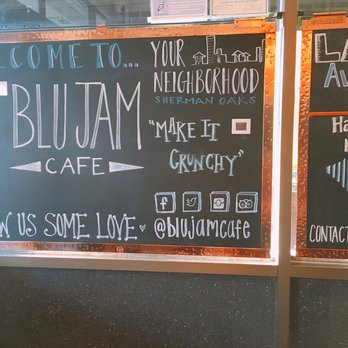 LCOME TO...
BLU JAM
CAFE
YOUR
NEIGHBORHOOD
SHERMAN OAKS
"MAKE IT
GRUNCHY"
W US SOME LOVE
@blujamcafe
LA
AV
Ha
CONTACT